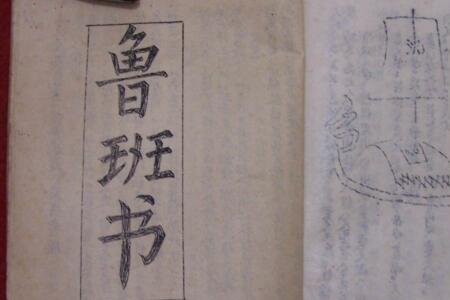 鲁班书